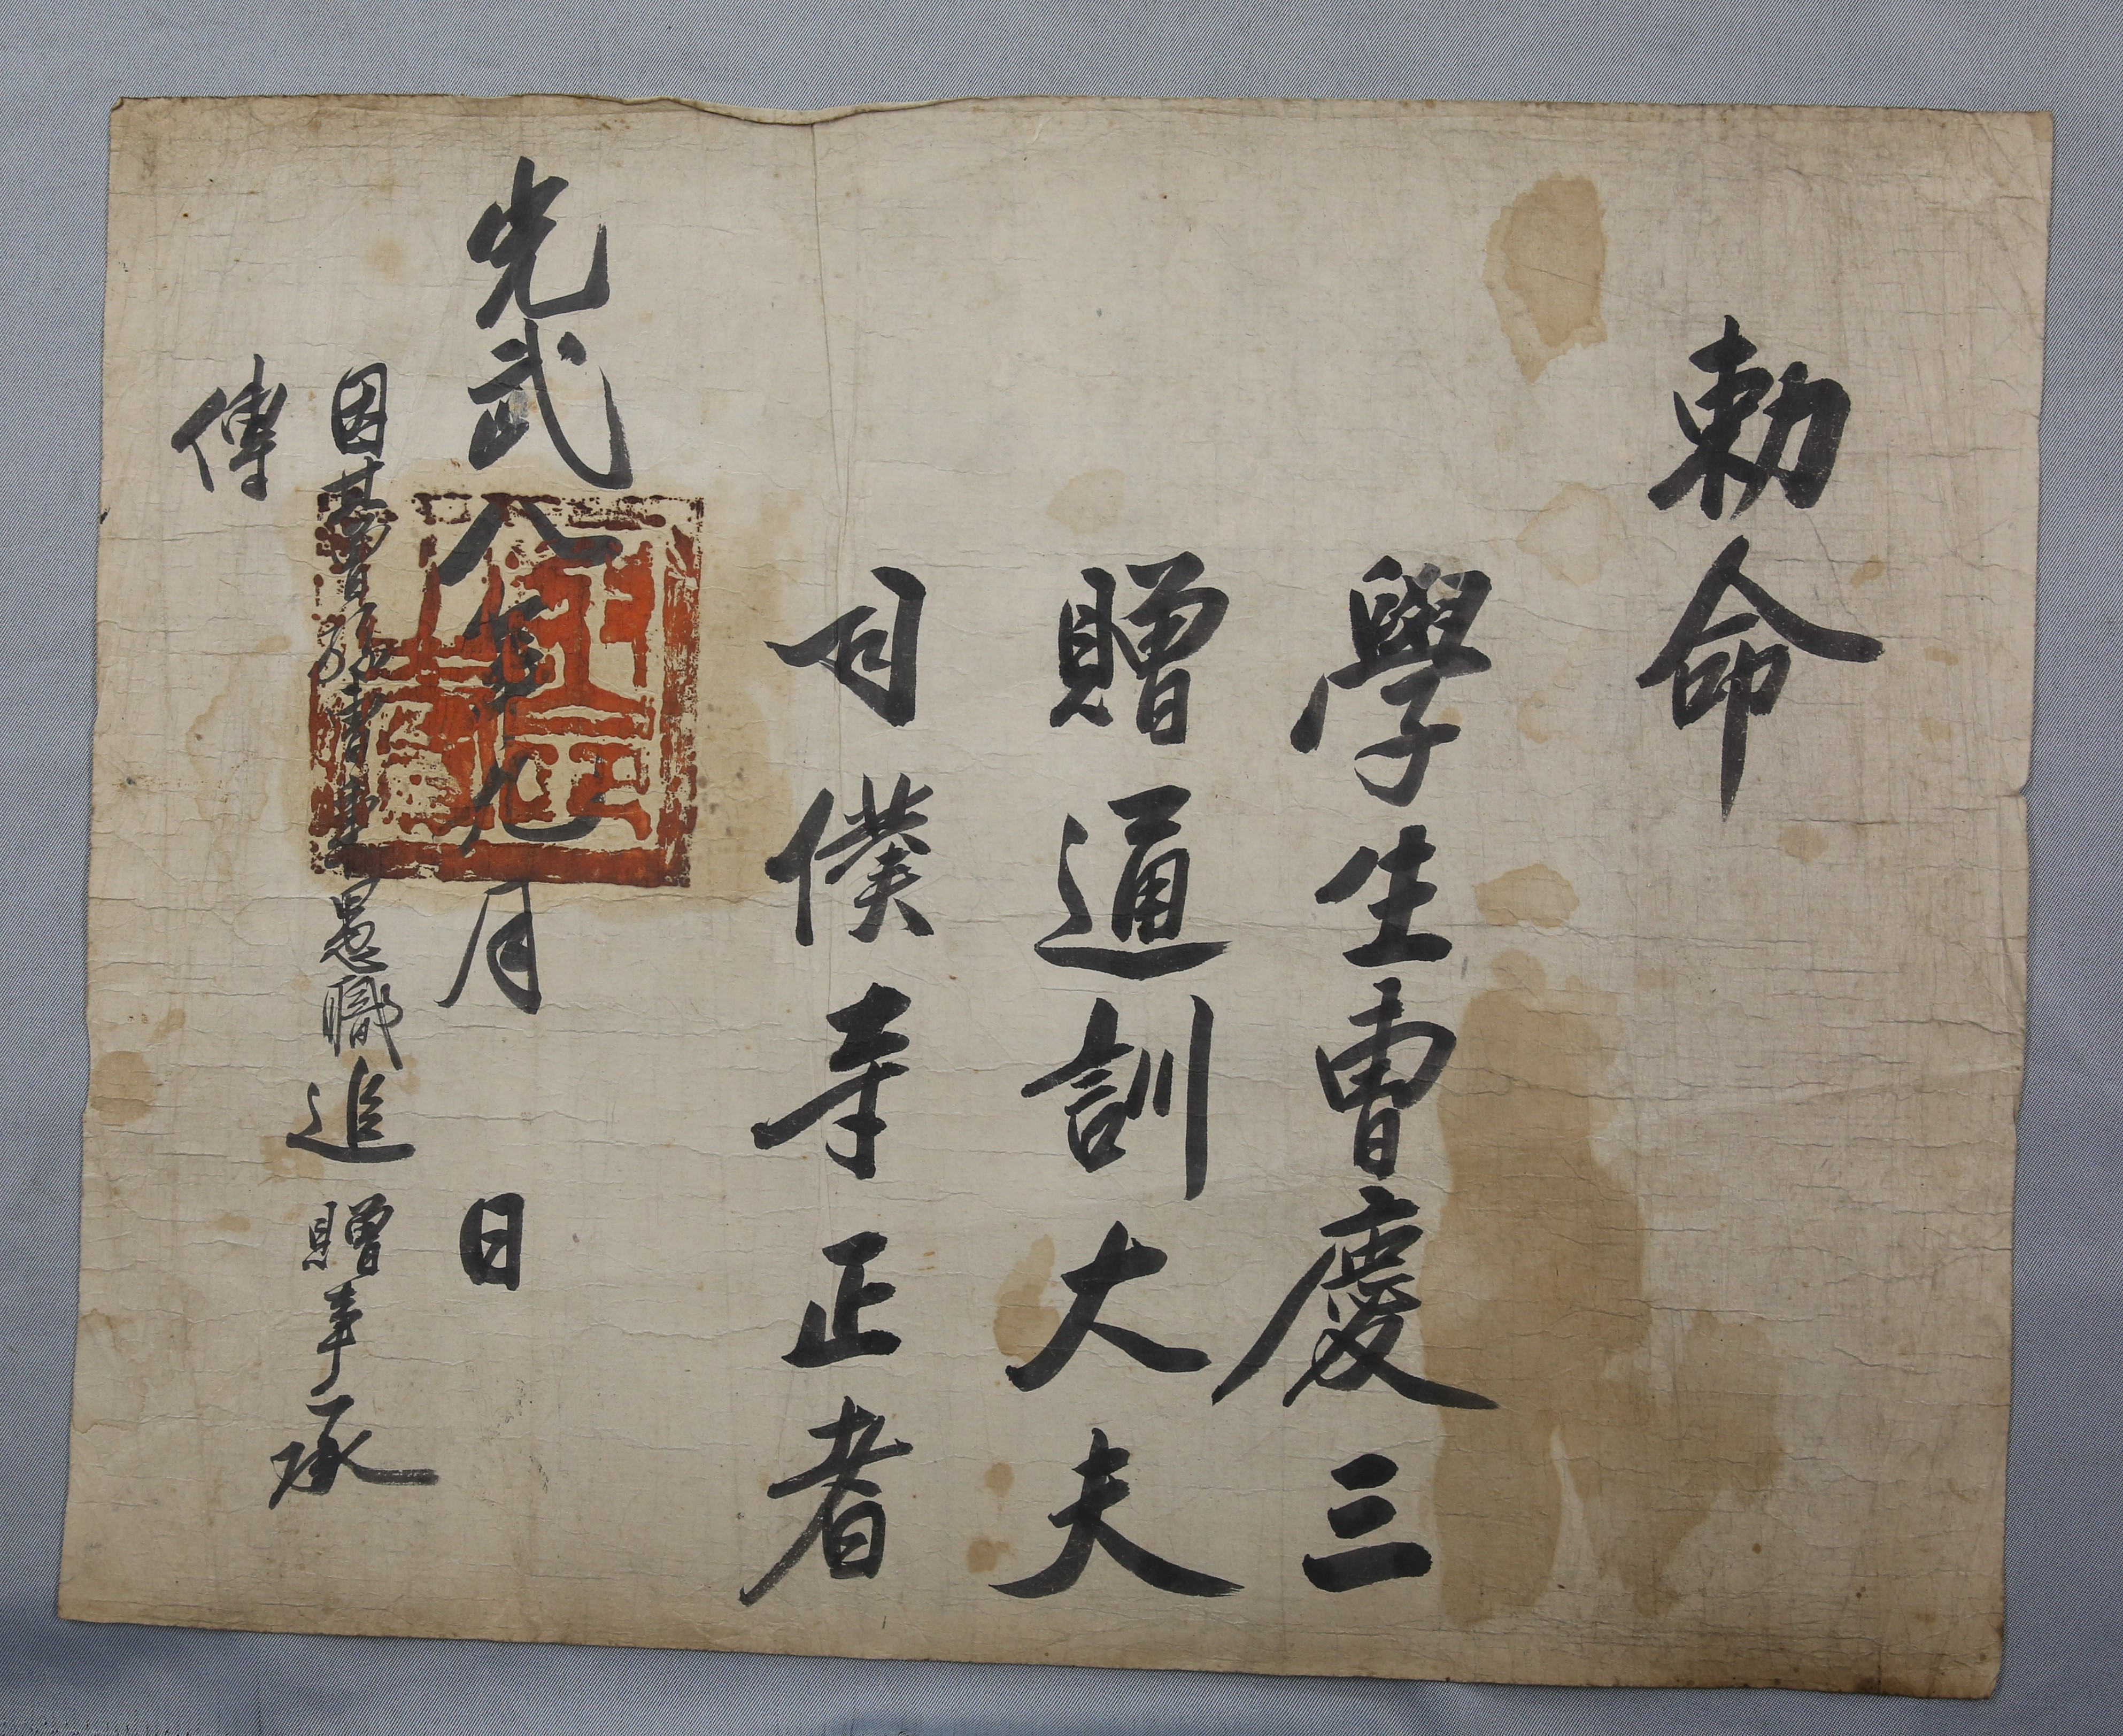 勅命
學生曺慶三
贈通訓大夫
司僕寺正者
光武八年九月 日
因其曺孫 職追 贈事承
傳